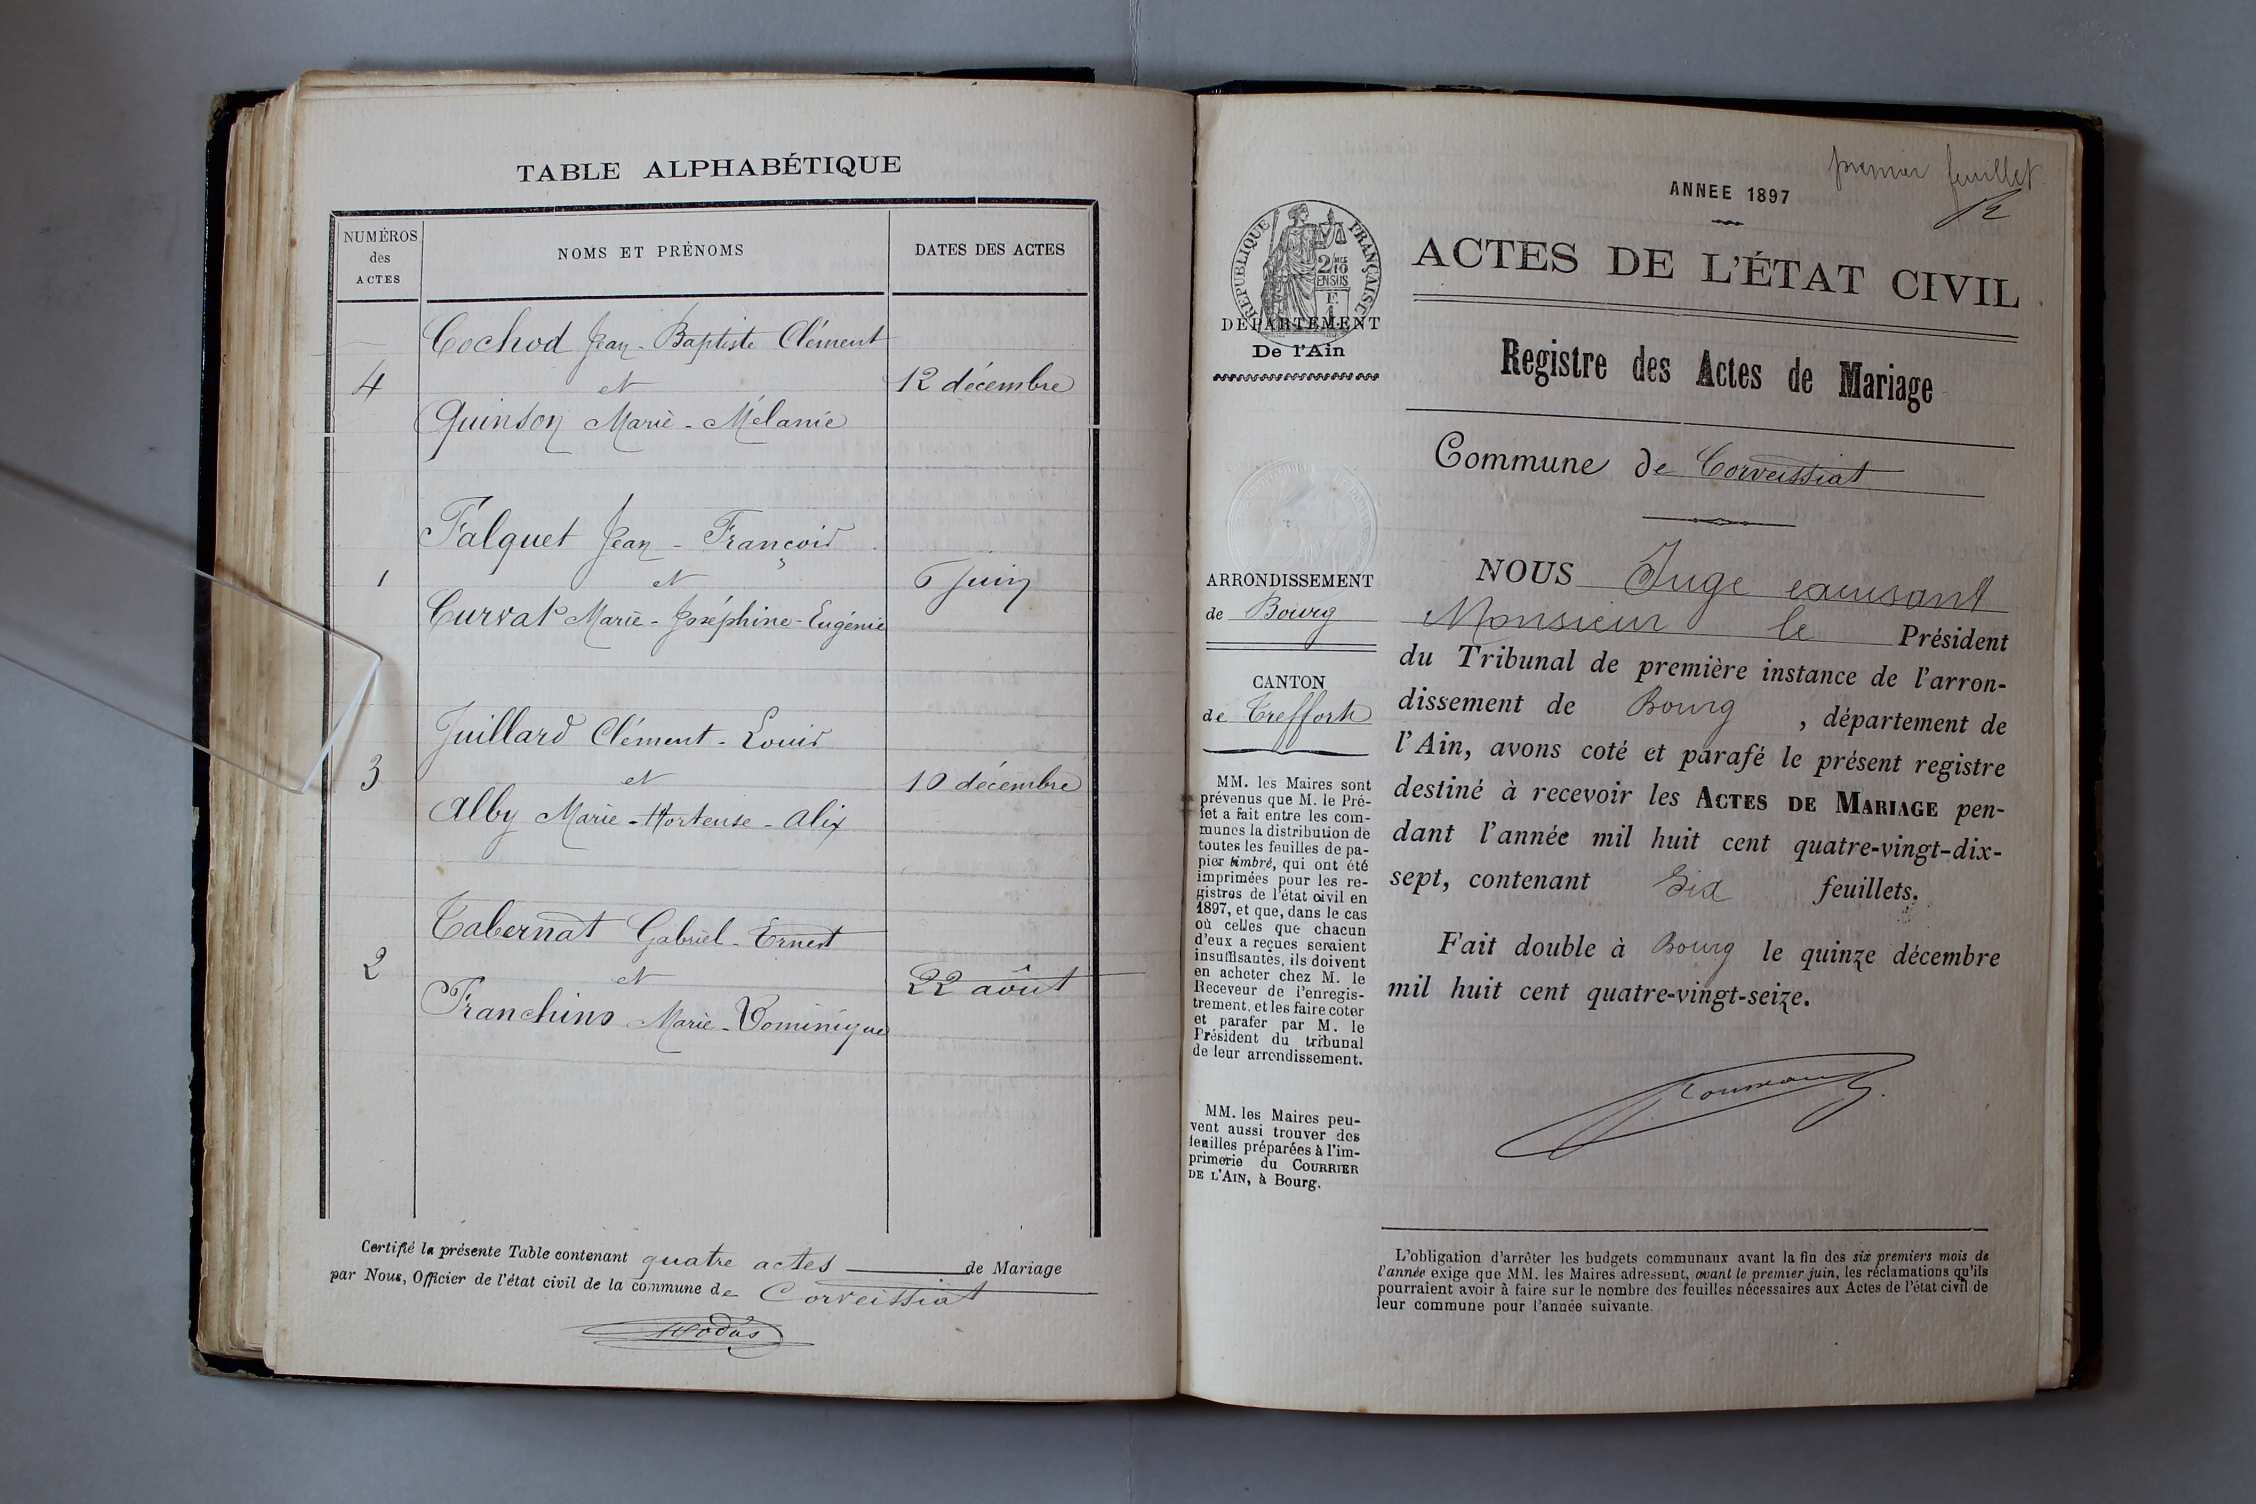 TABLE ALPHABÉTIQUE
NUMÉROS
des
ACTES
NOMS ET PRÉNOMS
DATES DES ACTES
Cochod Jean-Baptiste Clément
4
et
12 décembre
Quinson Marie-Mélanie
Falquet Jean-François
1
et
6 Juin
Curvat Marie-Joséphine-Eugénie
Juillard Clément-Louis
3
et
10 décembre
Alby Marie-Hortense-Alix
Tabernat Gabriel-Ernest
2
et
22 août
Franchino Marie-Dominique
Certifié la présente Table contenant quatre actes de Mariage
par Nous, Officier de l'état civil de la commune de Corveissiat
premier feuillet
ANNEE 1897
RÉPUBLIQUE FRANÇAISE
2/10
EN SUS
DÉPARTEMENT
De l'Ain
ACTES DE L'ÉTAT CIVIL
Registre des Actes de Mariage
Commune de Corveissiat
ARRONDISSEMENT
de Bourg
CANTON
de Treffort
MM. les Maires sont
prévenus que M. le Pré-
fet a fait entre les com-
munes la distribution de
toutes les feuilles de pa-
pier timbré, qui ont été
imprimées pour les re-
gistres de l'état civil en
1897, et que, dans le cas
où celles que chacun
d'eux a reçues seraient
insuffisantes, ils doivent
en acheter chez M. le
Receveur de l'enregis-
trement, et les faire coter
et parafer par M. le
Président du tribunal
de leur arrondissement.
MM. les Maires peu-
vent aussi trouver des
feuilles préparées à l'im-
primerie du COURRIER
DE L'AIN, à Bourg.
NOUS Juge excusant
Monsieur le Président
du Tribunal de première instance de l'arron-
dissement de Bourg, département de
l'Ain, avons coté et parafé le présent registre
destiné à recevoir les ACTES DE MARIAGE pen-
dant l'année mil huit cent quatre-vingt-dix-
sept, contenant Six feuillets.
Fait double à Bourg le quinze décembre
mil huit cent quatre-vingt-seize.
L'obligation d'arrêter les budgets communaux avant la fin des six premiers mois de
l'année exige que MM. les Maires adressent, avant le premier juin, les réclamations qu'ils
pourraient avoir à faire sur le nombre des feuilles nécessaires aux Actes de l'état civil de
leur commune pour l'année suivante.